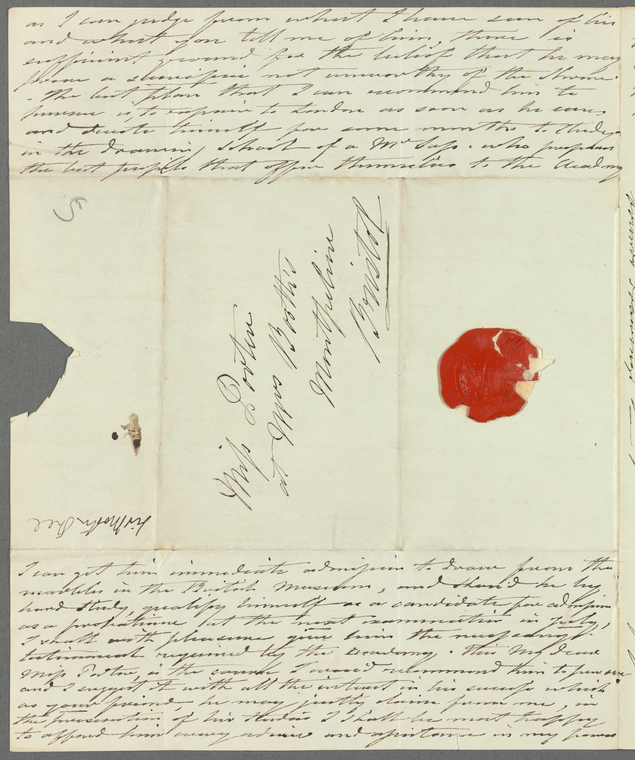 as I can judge from what I have seen of his
and what you tell me of him, there is
sufficient ground for the belief that he may
prove a successor not unworthy of the
. The best plan that I can recommend him to
pursue is, to repair to London as soon as he can,
and devote himself for some months to study
in the drawing School of a Mr Sass. who prepares
the best pupils that offer themselves to the Academy
5
Miss Porter
at Mrs Booth's
Montpelier
Bristol
I can get him immediate admission to draw from the
marbles in the British Museum, and should he by
hard study, qualify himself as a candidate for admission
as a probationer at the next examination in July,
I shall with pleasure give him the necessary
testimonial required by the Academy. This My dear
Miss Porter, is the course I would recommend him to pursue
and I suggest it with all the interest in his success which
as your friend he may justly claim from me, in
the prosecution of his studies I shall be most happy
to afford him every advice and assistance in my power